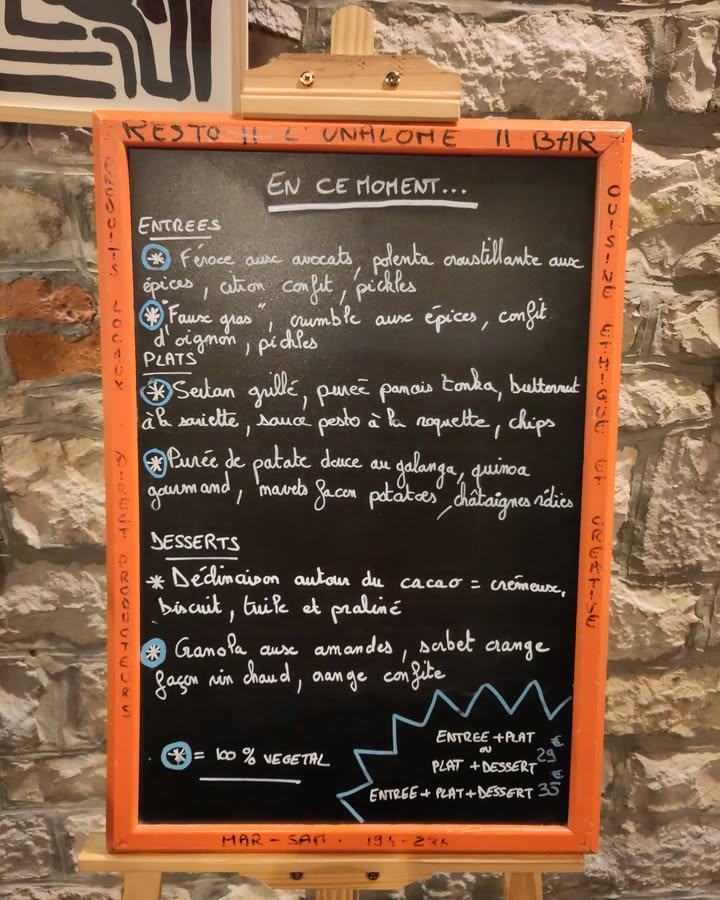 RESTO || L'UNALOME || BAR
PRODUITS LOCAUX DIRECT PRODUCTEURS
CUISINE ETHIQUE ET CREATIVE
EN CE MOMENT...
ENTREES
* Féroce aux avocats, polenta croustillante aux
épices, citron confit, pickles
* "Faux gras", crumble aux épices, confit
d'oignon, pickles
PLATS
* Seitan grillé, purée panais tonka, butternut
à la sariette, sauce pesto à la roquette, chips
* Purée de patate douce au galanga, quinoa
gourmand, navets façon potatoes, châtaignes rôties
DESSERTS
* Déclinaison autour du cacao = crémeux,
biscuit, tuile et praliné
* Granola aux amandes, sorbet orange
façon vin chaud, orange confite
* = 100% VEGETAL
ENTREE + PLAT
ou
PLAT + DESSERT 29 €
ENTREE + PLAT + DESSERT 35 €
MAR - SAM. 19h - 22h